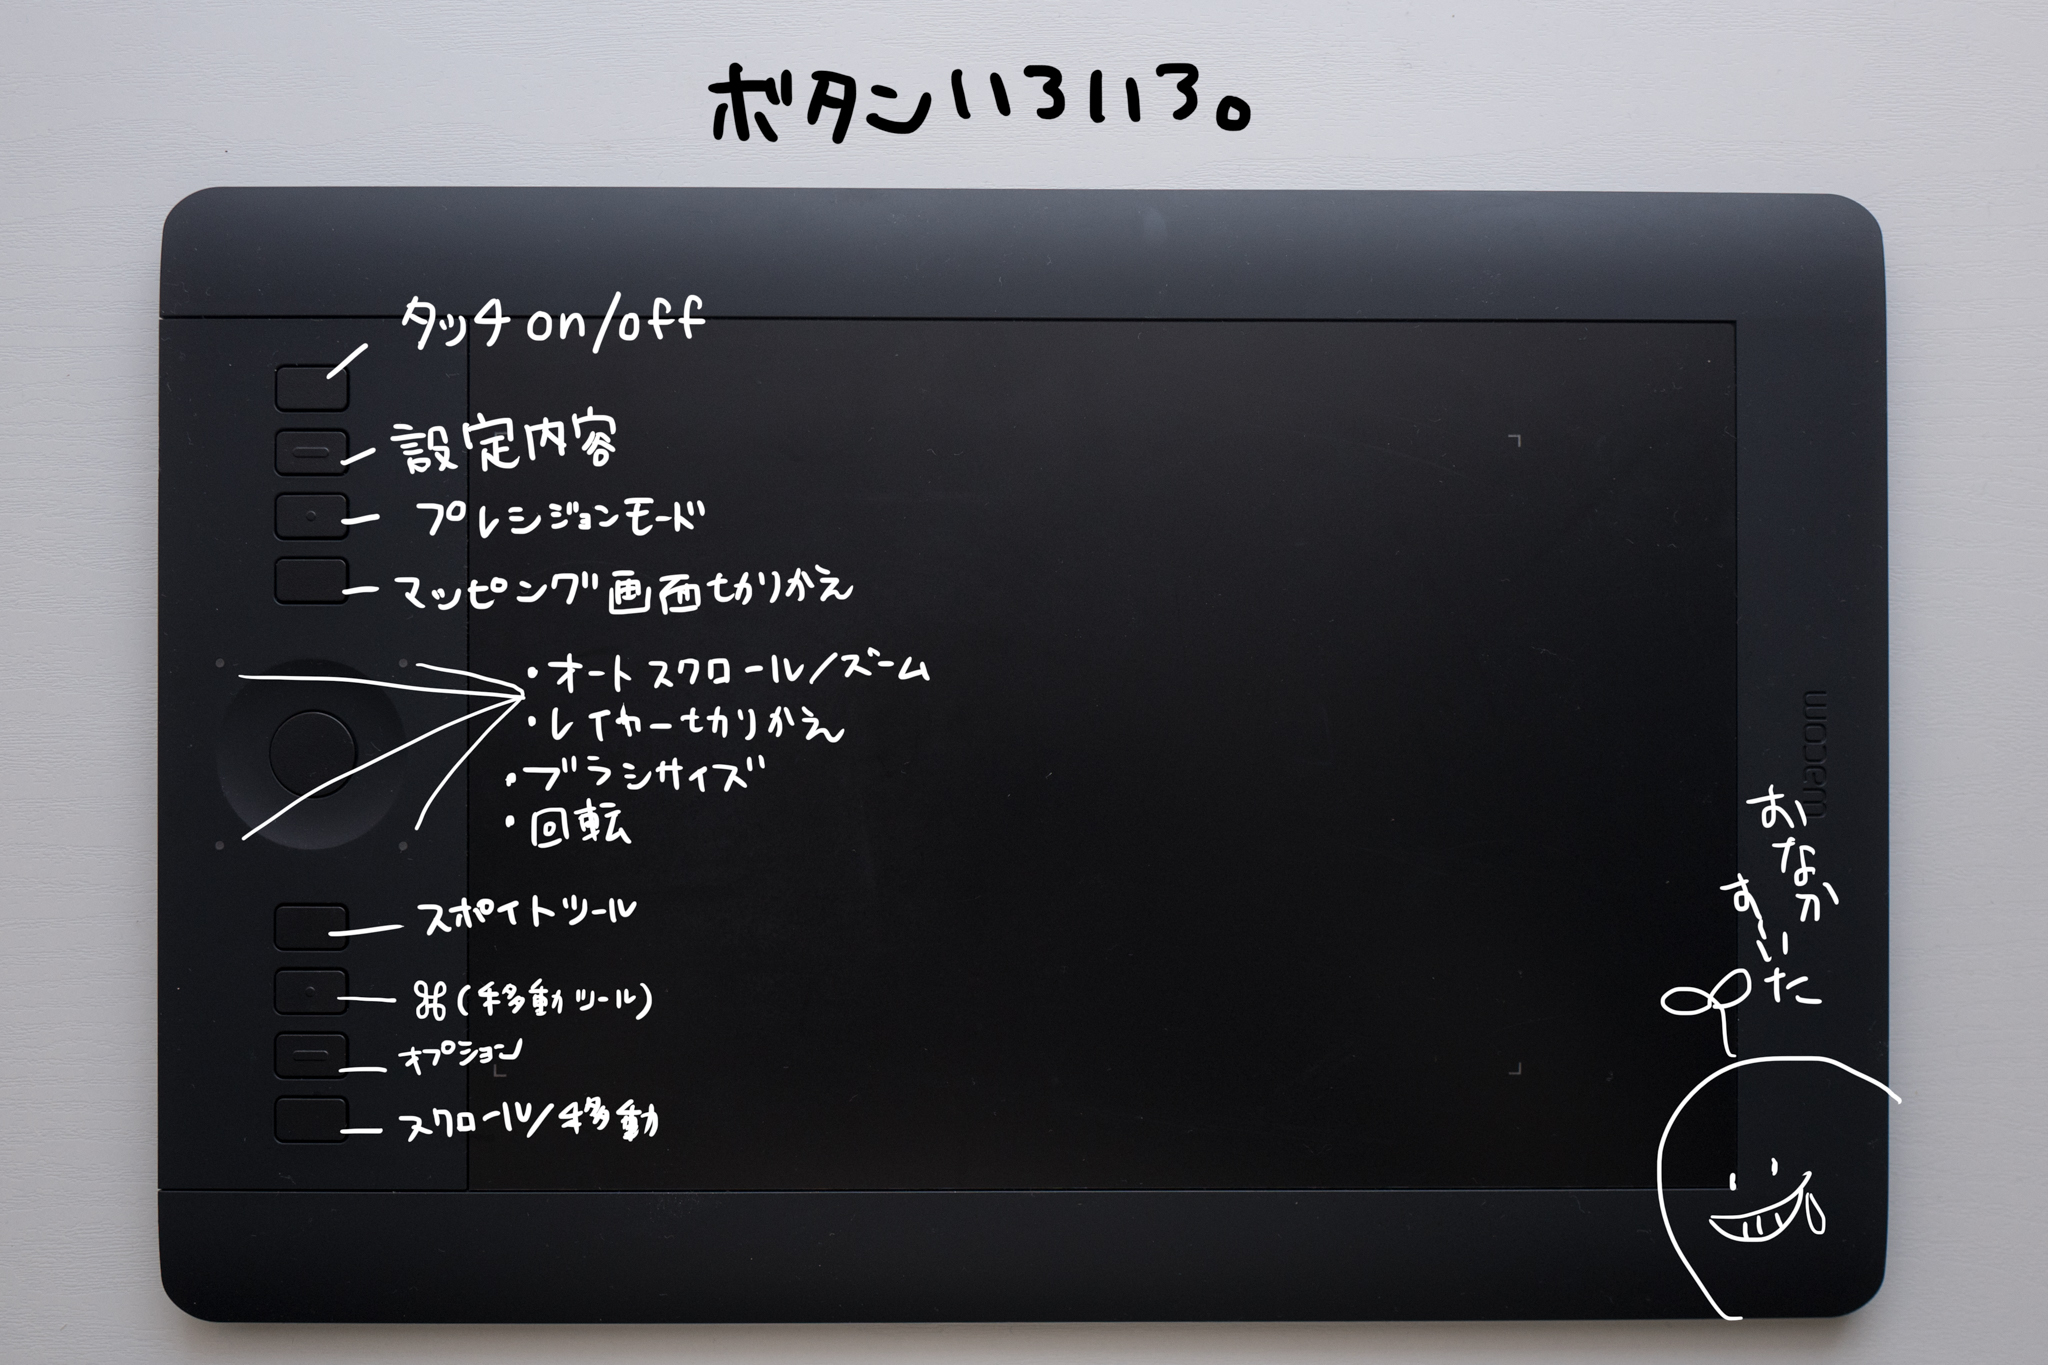 ボタンいろいろ。
タッチon/off
設定内容
プレシジョンモード
マッピング画面切りかえ
・オートスクロール/ズーム
・レイヤー切りかえ
・ブラシサイズ
・回転
スポイトツール
⌘(移動ツール)
オプション
スクロール/移動
wacom
おなか
す〜いた